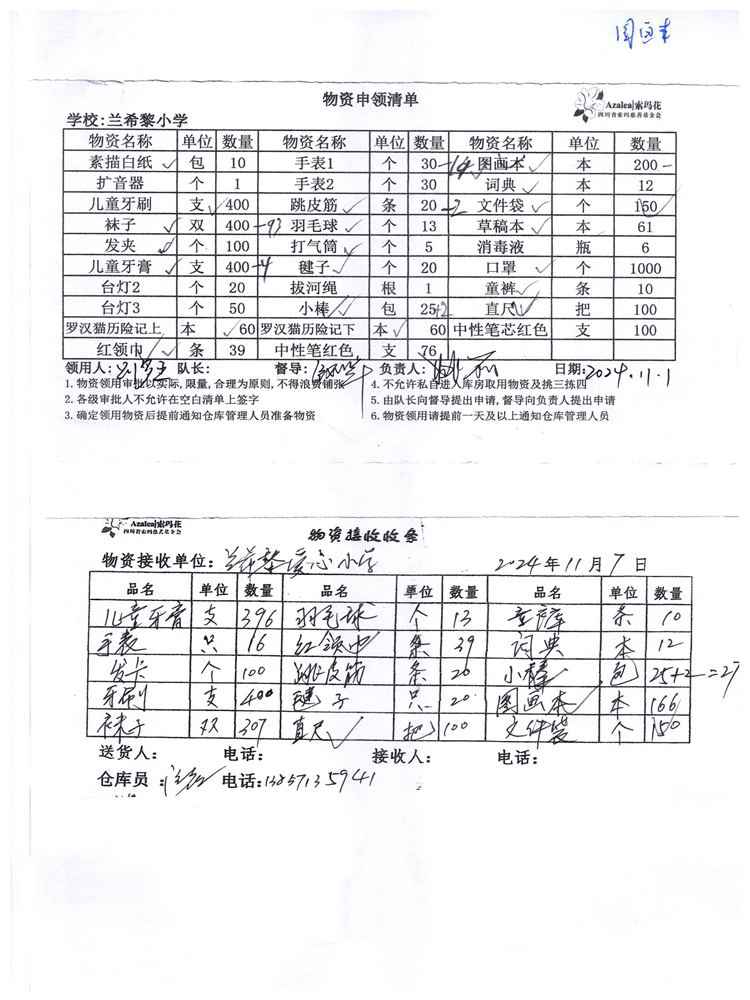 物资申领清单
Azalea|索玛花
四川省索玛慈善基金会
学校:兰希黎小学
物资名称 单位 数量 物资名称 单位 数量 物资名称 单位 数量
素描白纸 ✓ 包 10 手表1 个 30 -14 图画本 ✓ 本 200 -
扩音器 个 1 手表2 个 30 词典 ✓ 本 12
儿童牙刷 支 ✓ 400 跳皮筋 ✓ 条 20 -2 文件袋 ✓ 个 150
袜子 ✓ 双 400 -93 羽毛球 ✓ 个 13 草稿本 ✓ 本 61
发夹 ✓ 个 100 打气筒 ✓ 个 5 消毒液 瓶 6
儿童牙膏 ✓ 支 400 -4 毽子 ✓ 个 20 口罩 ✓ 个 1000
台灯2 个 20 拔河绳 根 1 童裤 ✓ 条 10
台灯3 个 50 小棒 ✓ 包 25+2 直尺 ✓ 把 100
罗汉猫历险记上 本 ✓ 60 罗汉猫历险记下 本 ✓ 60 中性笔芯红色 支 100
红领巾 ✓ 条 39 中性笔红色 支 76
领用人: 队长: 督导: 负责人: 日期: 2024.11.1
1. 物资领用审批以实际, 限量, 合理为原则, 不得浪费铺张 4. 不允许私自进入库房取用物资及挑三拣四
2. 各级审批人不允许在空白清单上签字 5. 由队长向督导提出申请, 督导向负责人提出申请
3. 确定领用物资后提前通知仓库管理人员准备物资 6. 物资领用请提前一天及以上通知仓库管理人员
Azalea|索玛花
四川省索玛慈善基金会
物资接收收条
物资接收单位: 兰希黎爱心小学 2024年11月7日
品名 单位 数量 品名 单位 数量 品名 单位 数量
儿童牙膏 支 396 羽毛球 个 13 童裤 条 10
手表 只 16 红领巾 条 39 词典 本 12
发卡 个 100 跳皮筋 条 20 小棒 包 25+2=27
牙刷 支 400 毽子 只 20 图画本 本 166
袜子 双 307 直尺 ✓ 把 100 文件袋 个 150
送货人: 电话: 接收人: 电话:
仓库员: 电话: 13857135941